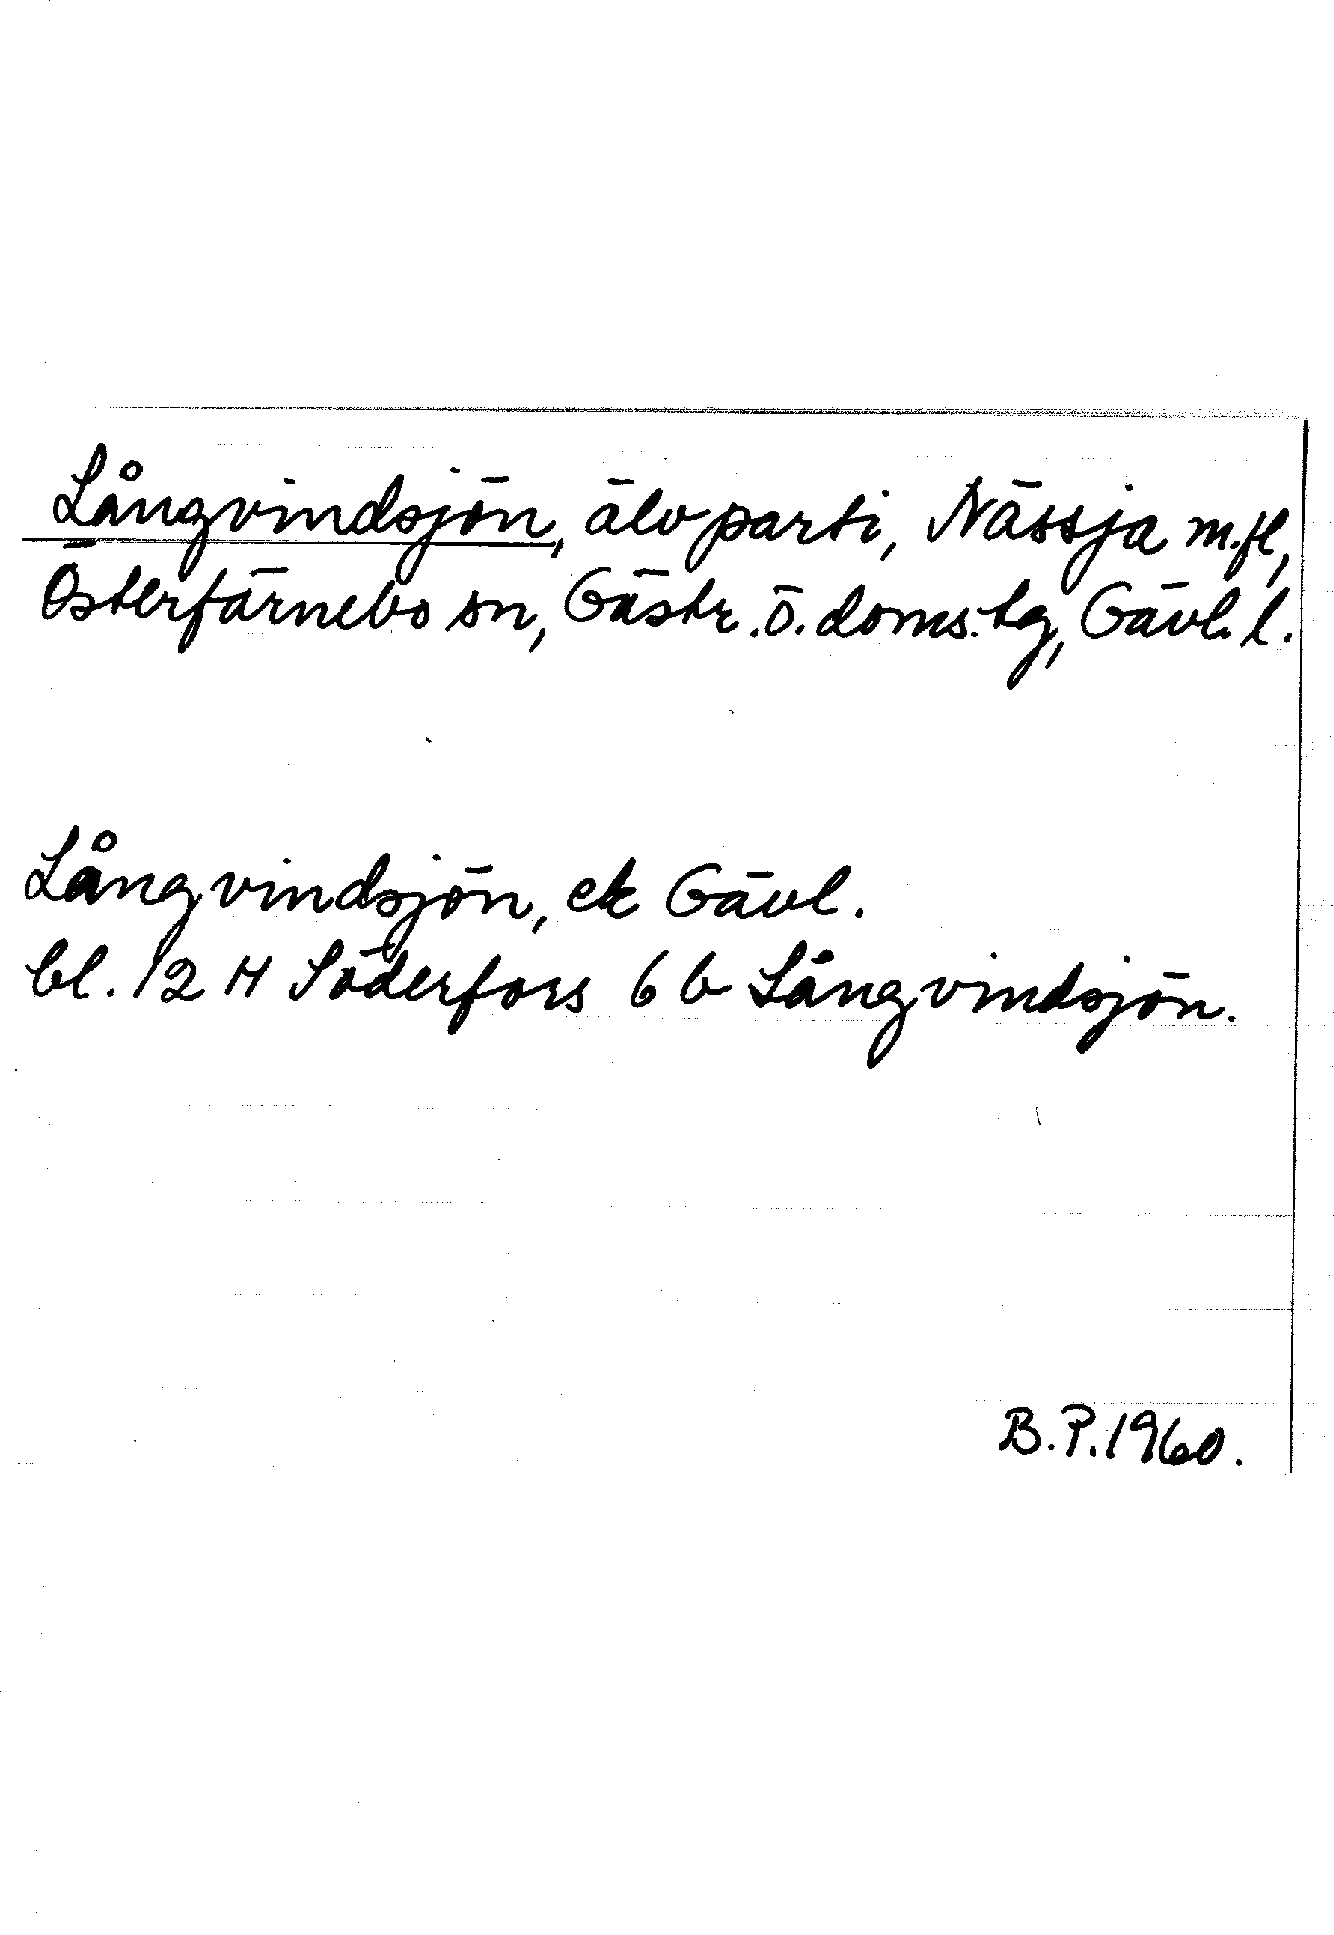 Långvindsjön, älvparti, Nässja m.fl,
Österfärnebo sn, Gästr. ö. doms. tg, Gävl. l.
Långvindsjön, ek Gävl.
bl. 12 H Söderfors 6 b Långvindsjön.
B.P. 1960.